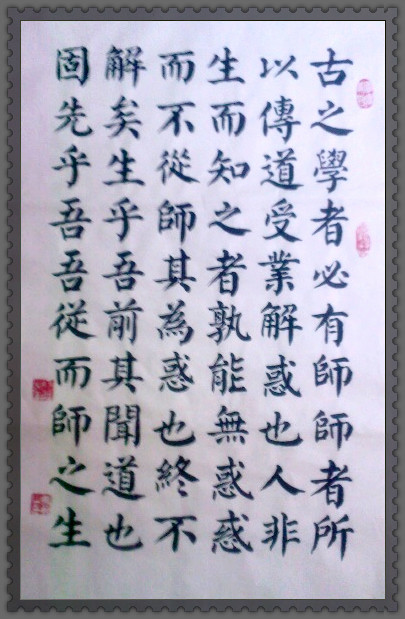 古之學者必有師師者所
以傳道受業解惑也人非
生而知之者孰能無惑惑
而不從師其為惑也終不
解矣生乎吾前其聞道也
固先乎吾吾從而師之生